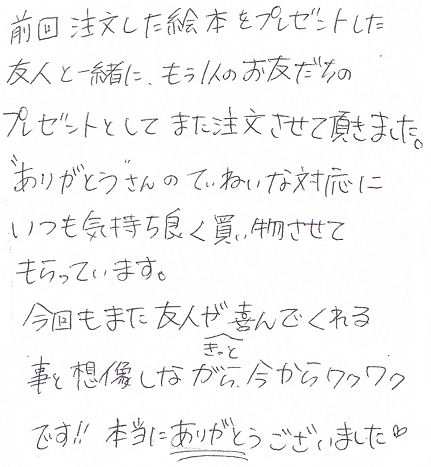 前回注文した絵本をプレゼントした
友人と一緒に、もう1人のお友だちの
プレゼントとしてまた注文させて頂きました。
"ありがとう"さんのていねいな対応に
いつも気持ち良く買い物させて
もらっています。
今回もまた友人がきっと喜んでくれる
事と想像しながら、今からワクワク
です!! 本当にありがとうございました♡